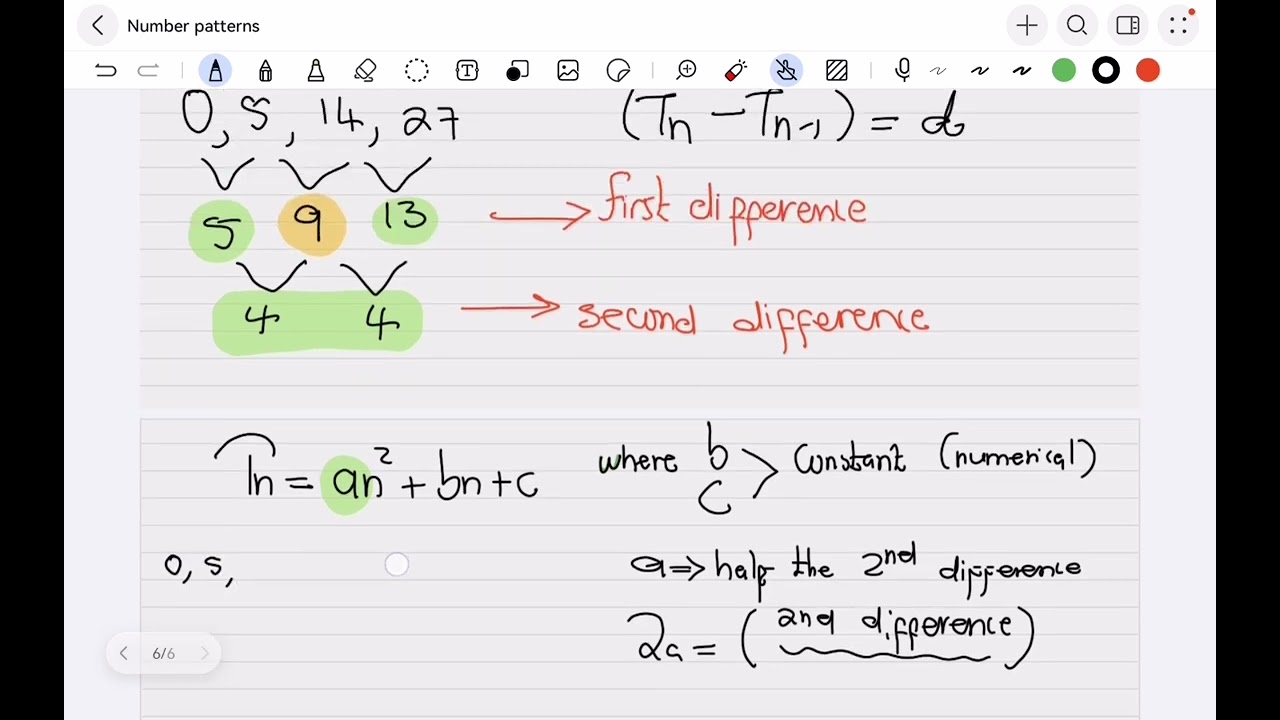 Number patterns
0, 5, 14, 27 (Tn - Tn-1) = d
5 9 13 → first difference
4 4 → second difference
Tn = an² + bn + c where b c > constant (numerical)
0, 5, a ⇒ half the 2nd difference
2a = (2nd difference)
6/6